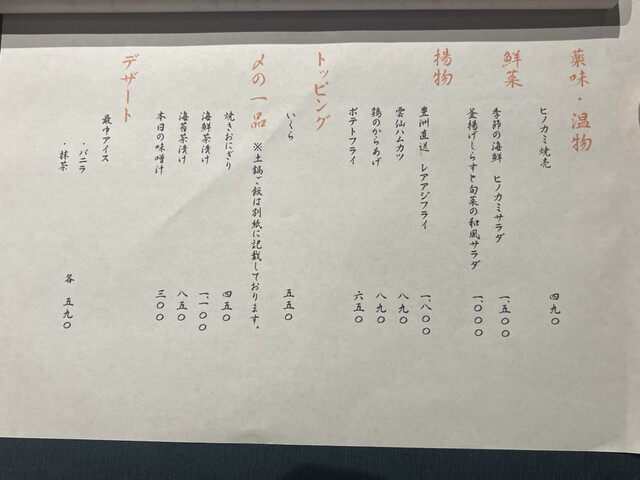 薬味・温物
ヒノカミ焼売 四九〇
鮮菜
季節の海鮮 ヒノカミサラダ 一、五〇〇
釜揚げしらすと旬菜の和風サラダ 一、〇〇〇
揚物
豊洲直送 レアアジフライ 一、八〇〇
雲仙ハムカツ 八九〇
鶏のからあげ 八九〇
ポテトフライ 六五〇
トッピング
いくら 五五〇
〆の一品 ※土鍋ご飯は別紙に記載しております。
焼きおにぎり 四五〇
海鮮茶漬け 一、一〇〇
海苔茶漬け 八五〇
本日の味噌汁 三〇〇
デザート
最中アイス
・バニラ
・抹茶 各 五九〇